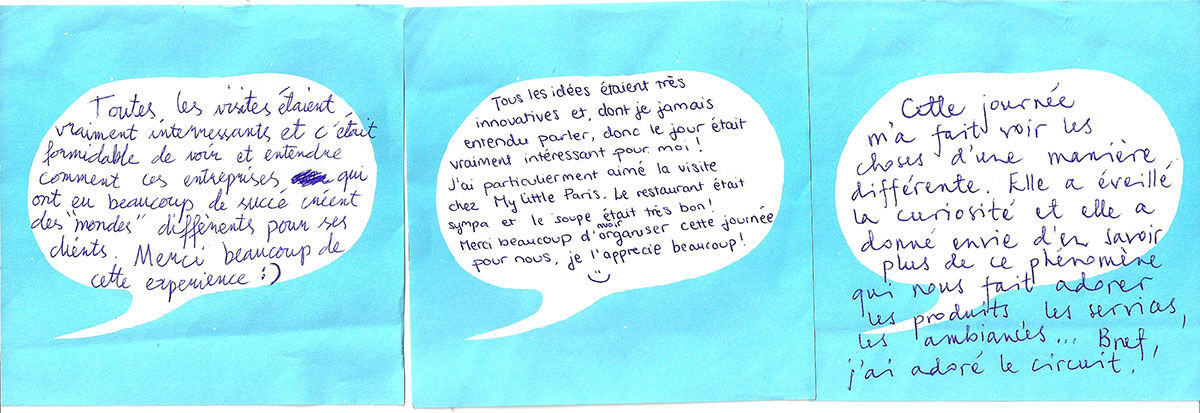 Toutes les visites étaient
vraiment interressants et c'était
formidable de voir et entendre
comment ces entreprises qui
ont eu beaucoup de succé créent
des "mondes" différents pour ses
clients. Merci beaucoup de
cette experience :)
Tous les idées étaient très
innovatives et, dont je jamais
entendu parler, donc le jour était
vraiment intéressant pour moi !
J'ai particulierment aimé la visite
chez My Little Paris. Le restaurant était
sympa et le soupe était très bon!
Merci beaucoup d'avoir organiser cette journée
pour nous, je l'apprecié beaucoup!
Cette journée
m'a fait voir les
choses d'une manière
différente. Elle a éveillé
la curiosité et elle a
donné envie d'en savoir
plus de ce phénomène
qui nous fait adorer
les produits, les services,
les ambiances... Bref,
j'ai adoré le circuit.